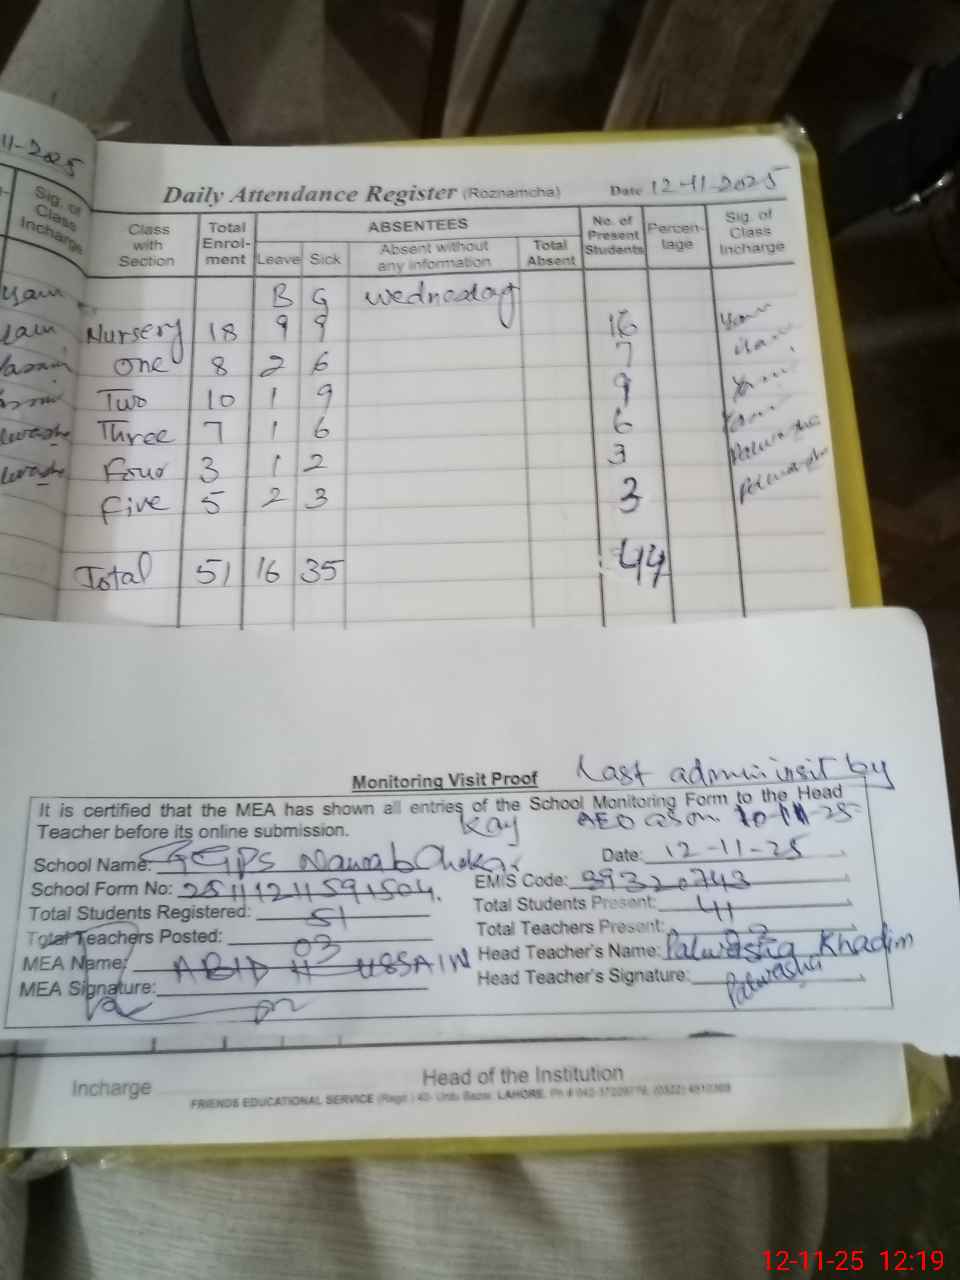 11-2025
Sig. of
Class
Incharge
Daily Attendance Register (Roznamcha) Date 12-11-2025
Class with Section Total Enrol-ment ABSENTEES No. of Present Students Percen-tage Sig. of Class Incharge
Leave Sick Absent without any information Total Absent
B G Wednesday
Nursery 18 9 9 16
One 8 2 6 7
Two 10 1 9 9
Three 7 1 6 6
Four 3 1 2 3 Palwasha
Five 5 2 3 3 Palwasha
Total 51 16 35 44
Monitoring Visit Proof Last admin visit by
It is certified that the MEA has shown all entries of the School Monitoring Form to the Head
Teacher before its online submission. AEO as on 10-11-25
School Name: GGPS Nawab Kay Date: 12-11-25
School Form No: EMIS Code: 39320743
Total Students Registered: 51 Total Students Present: 41
Total Teachers Posted: 03 Total Teachers Present:
MEA Name: ABID HUSSAIN Head Teacher's Name: Palwasha Khadim
MEA Signature: Head Teacher's Signature: Palwasha
Incharge Head of the Institution
FRIENDS EDUCATIONAL SERVICE (Regd.) 40- Urdu Bazar, LAHORE.
12-11-25 12:19